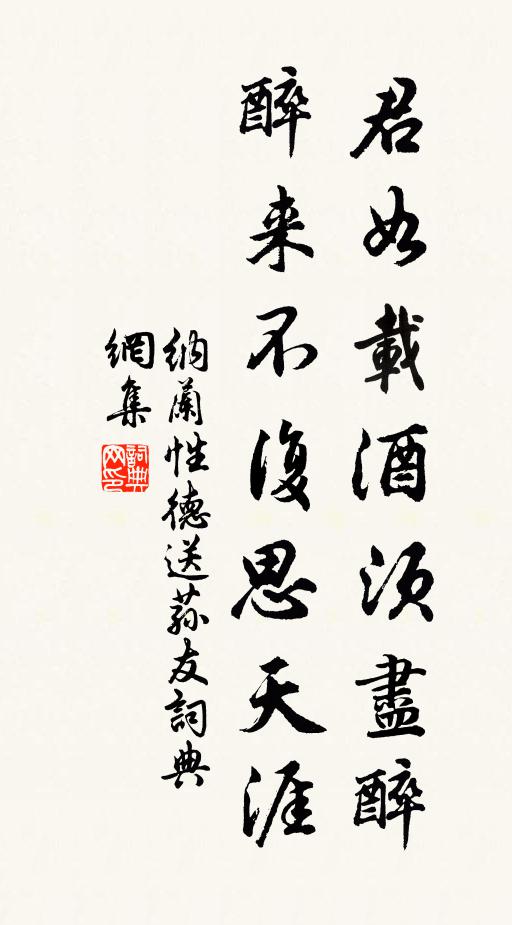 君如載酒須盡醉
醉来不復思天涯
納蘭性德送蓀友詞典
網集
詞典
网印